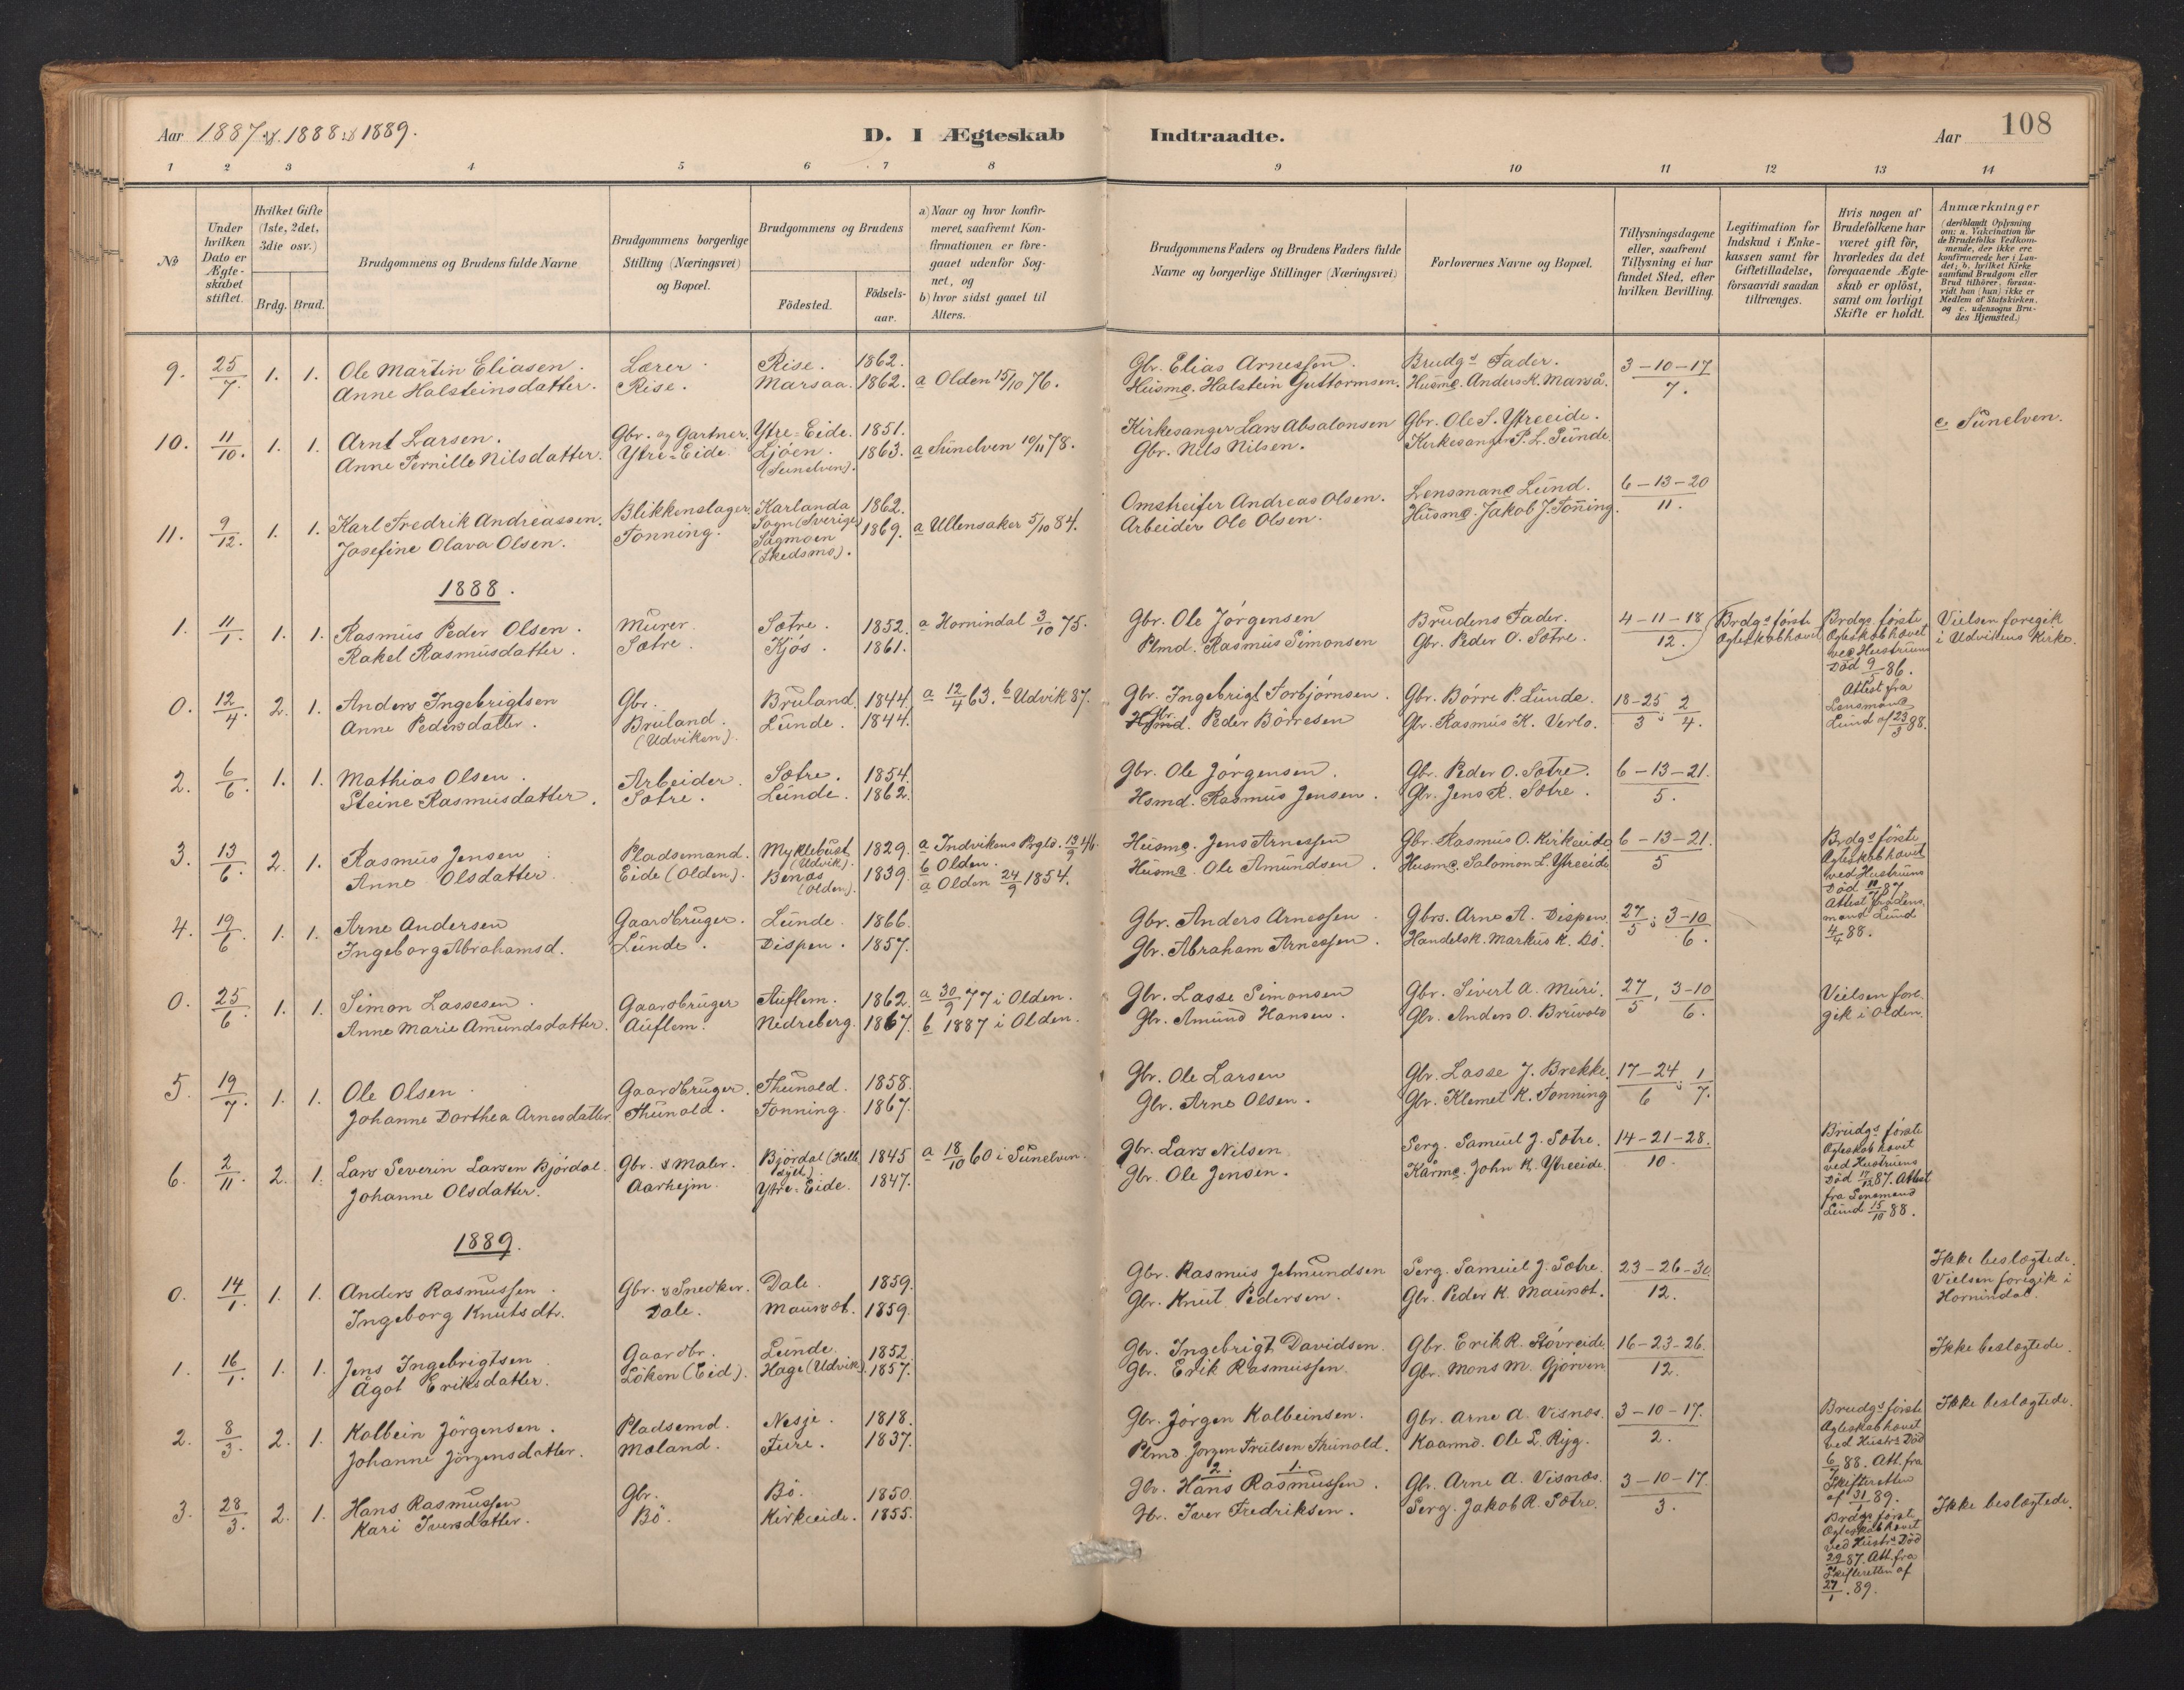 Aar 1887 & 1888 & 1889.
D. I Ægteskab Indtraadte.
Aar 108
1 2 3 4 5 6 7 8 9 10 11 12 13 14
№
Under hvilken Dato er Ægteskabet stiftet.
Hvilket Gifte (1ste, 2det, 3die osv.)
Brdg. Brud.
Brudgommens og Brudens fulde Navne
Brudgommens borgerlige Stilling (Næringsvei) og Bopæl.
Brudgommens og Brudens
Födested.
Födselsaar.
a) Naar og hvor konfirmeret, saafremt Konfirmationen er foregaaet udenfor Sognet, og
b) hvor sidst gaaet til Alters.
Brudgommens Faders og Brudens Faders fulde Navne og borgerlige Stillinger (Næringsvei)
Forlovernes Navne og Bopæl.
Tillysningsdagene eller, saafremt Tillysning ei har fundet Sted, efter hvilken Bevilling.
Legitimation for Indskud i Enkekassen samt for Giftetilladelse, forsaavidt saadan tiltrænges.
Hvis nogen af Brudefolkene har været gift för, hvorledes da det foregaaende Ægteskab er oplöst, samt om lovligt Skifte er holdt.
Anmærkninger (deriblandt Oplysning om: a. Vakcination for de Brudefolks Vedkommende, der ikke ere konfirmerede her i Landet; b. hvilket Kirkesamfund Brudgom eller Brud tilhörer, forsaavidt han (hun) ikke er Medlem af Statskirken, og c. udensogns Brudes Hjemsted.)
9. 25/7. 1. 1. Ole Martin Eliasen. Lærer Rise. 1862. Gbr. Elias Arnessen. Brudgs Fader. 3-10-17/7.
Anne Halsteinsdatter. Rise. Marsaa. 1862. a Olden 15/10 76. Husmd. Halstein Guttormsen. Husmd. Anders K. Marså.
10. 11/10. 1. 1. Arnt Larsen. Gbr. og Gartner. Ytre-Eide. 1851. Kirkesanger Lars Absalonsen Gbr. Ole S. Ytreeide. c Sunelven.
Anne Pernille Nilsdatter. Ytre-Eide. Ljöen. (Sunelven). 1863. a Sunelven 10/11 78. Gbr. Nils Nilsen. Kirkesanger P. L. Sunde.
11. 9/12. 1. 1. Karl Fredrik Andreassen. Blikkenslager Karlanda Sogn (Sverige) 1862. Omstreifer Andreas Olsen. Lensmand Lund. 6-13-20/11.
Josefine Olava Olsen. Tonning. Sagmoen (Skedsmo). 1869. a Ullensaker 5/10 84. Arbeider Ole Olsen. Husmd. Jakob J. Tonning.
1888.
1. 11/1. 1. 1. Rasmus Peder Olsen. Murer. Sætre. 1852. a Hornindal 3/10 75. Gbr. Ole Jørgensen Brudens Fader. 4-11-18/12. Brdgs förste Ægteskab hævet Brdgs förste Ægteskab hævet ved Hustruens Död 9/5 86. Attest fra Lensmand Lund af 23/3 88. Vielsen foregik i Udvikens Kirke.
Rakel Rasmusdatter. Sætre. Kjós. 1861. Plmd. Rasmus Simonsen Gbr. Peder O. Sætre.
0. 12/4. 2. 1. Anders Ingebrigtsen Gbr. Bruland. 1844. a 12/4 63. b Udvik 87. Gbr. Ingebrigt Torbjörnsen. Gbr. Börre P. Lunde. 18-25/3; 2/4.
Anne Pedersdatter. Bruland. (Udviken). Lunde. 1844. Gbr. Peder Börresen Gbr. Rasmus K. Verlo.
2. 6/6. 1. 1. Mathias Olsen. Arbeider. Sætre. 1854. Gbr. Ole Jørgensen. Gbr. Peder O. Sætre. 6-13-21./5.
Steine Rasmusdatter. Sætre. Lunde. 1862. Hsmd. Rasmus Jensen. Gbr. Jens R. Sætre.
3. 13/6. 2. 1. Rasmus Jensen Pladsemand. Myklebust (Udvik). 1829. a Indvikens Prgld. 13/9 46. b Olden. Husmd. Jens Arnessen Gbr. Rasmus O. Kirkeide 6-13-21./5 Brdgs förste Ægteskab hævet ved Hustruens Död 11/7 87. Attest fra Lensmand Lund 4/4 88.
Anne Olsdatter. Eide (Olden). Benæs (Olden). 1839. a Olden 24/9 1854. Husmd. Ole Amundsen Husmd. Salomon L. Ytreeide
4. 19/6. 1. 1. Arne Andersen Gaardbruger. Lunde. 1866. Gbr. Anders Arnessen. Gbrs. Arne A. Dispen. 27/5; 3-10/6.
Ingeborg Abrahamsd. Lunde. Dispen. 1857. Gbr. Abraham Arnessen. Handelsk. Markus K. Do.
0. 25/6. 1. 1. Simon Lassesen. Gaardbruger Auflem. 1862. a 30/9 77 i Olden. Gbr. Lasse Simonsen Gbr. Sivert A. Muri. 27/5, 3-10/6. Vielsen foregik i Olden.
Anne Marie Amundsdatter. Auflem. Nedreberg. 1867. b 1887 i Olden. Gbr. Amund Hansen. Gbr. Anders O. Bruvold
5. 19/7. 1. 1. Ole Olsen Gaardbruger. Thunold. 1858. Gbr. Ole Larsen Gbr. Lasse J. Brekke. 17-24/6; 1/7.
Johanne Dorthea Arnesdatter Thunold. Tonning. 1867. Gbr. Arne Olsen. Gbr. Klemet K. Tonning
6. 2/11. 2. 1. Lars Severin Larsen Bjórdal. Gbr. & Maler. Bjórdal (Hellesylt) 1845 a 18/10 60 i Sunelven. Gbr. Lars Nilsen Serg. Samuel J. Sætre. 14-21-28./10. Brudgs förste Ægteskab hævet ved Hustruens Död 17/12 87. Attest fra Lensmand Lund 15/10 88.
Johanne Olsdatter. Aarhejm. Ytre-Eide. 1847. Gbr. Ole Jensen. Kårmd. John K. Ytreeide.
1889.
0. 14/1. 1. 1. Anders Rasmussen. Gbr. & Snedker. Dale. 1859. Gbr. Rasmus Jetmundsen Serg. Samuel J. Sætre. 23-26-30/12. Ikke beslægtede. Vielsen foregik i Hornindal.
Ingeborg Knutsdtr. Dale. Maurset. 1859. Gbr. Knut Pedersen. Gbr. Peder K. Maurset.
1. 16/1. 1. 1. Jens Ingebrigtsen Gaardbr. Lunde. 1852. Gbr. Ingebrigt Davidsen. Gbr. Erik R. Stóvreide. 16-23-26./12. Ikke beslægtede.
Ågot Eriksdatter. Löken (Eid). Hage (Udvik). 1857. Gbr. Erik Rasmussen. Gbr. Mons M. Gjørven
2. 8/3. 2. 1. Kolbein Jörgensen. Pladsemd. Nesje. 1818. Gbr. Jørgen Kolbeinsen. Gbr. Arne A. Visnæs. 3-10-17./2. Brudgs förste Ægteskab hævet ved Hustrs Död 6/7 88. Att. fra Skifteretten af 31/1 89. Ikke beslægtede.
Johanne Jörgensdatter. Mæland. Furre. 1837. Plmd. Jørgen Trulsen Thunold. Kaarmd. Ole L. Ryg.
3. 28/3. 2. 1. Hans Rasmussen Gbr. Bö. 1850. Gbr. Hans 2. Rasmussen 1. Gbr. Arne A. Visnæs. 3-10-17./3. Brdgs förste Ægteskab hævet ved Hustrs Död 29/9 87. Att. fra Skifteretten af 27/1. 89. Ikke beslægtede.
Kari Iversdatter. Bö. Kirkeeide. 1855. Gbr. Iver Fredriksen. Serg. Jakob R. Sætre.